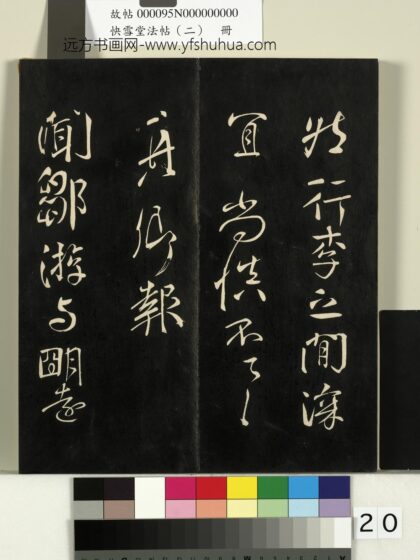 故帖 000095N000000000
快雪堂法帖（二） 冊
远方书画网-www.yfshuhua.com
行李之間深
宜尚慎不
真卿報
聞鄒游与明遠
20